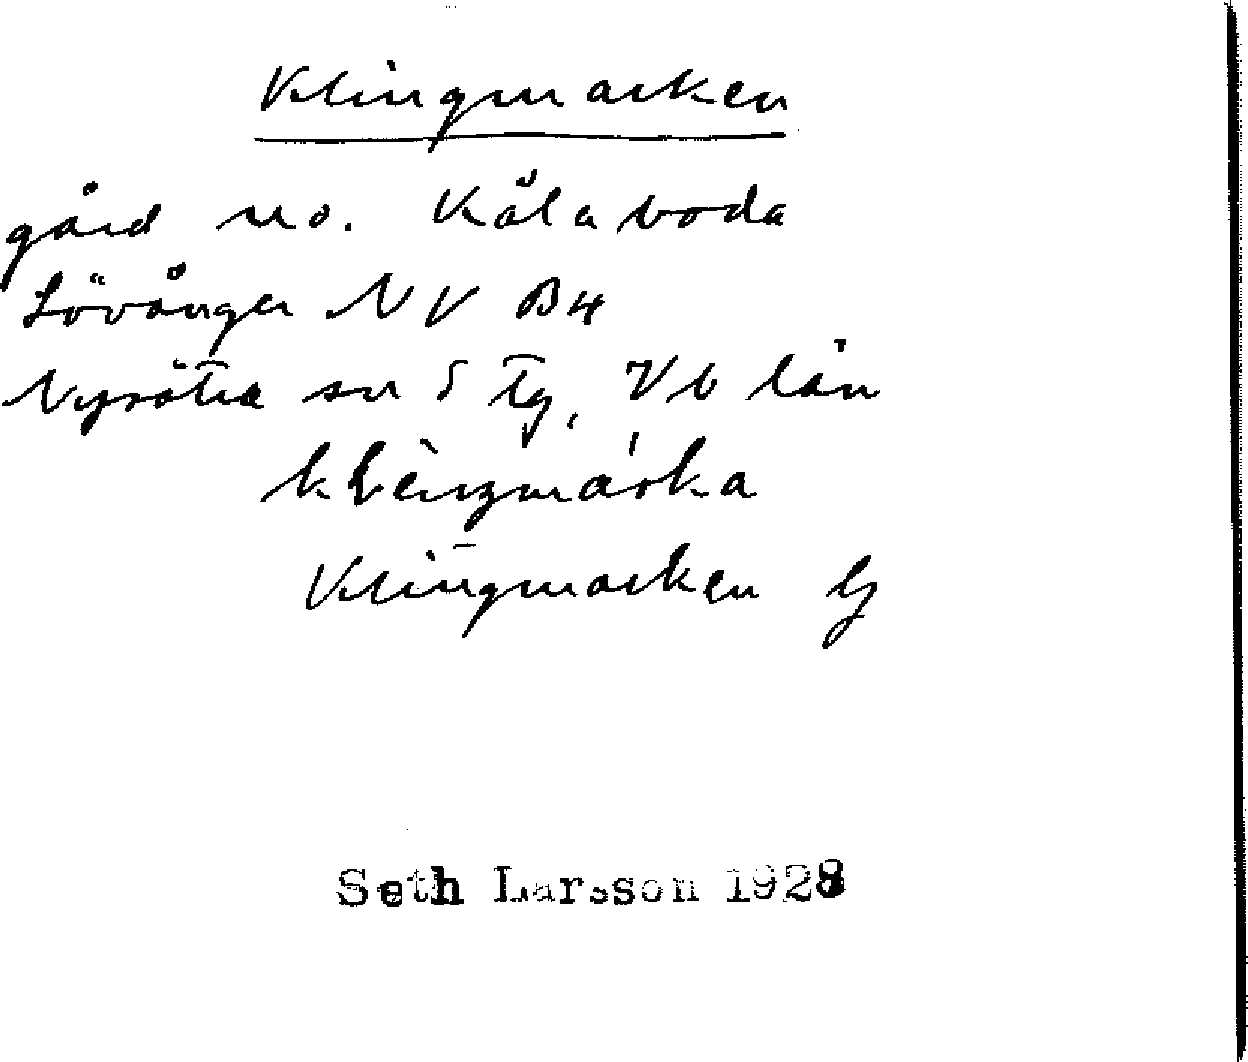 Klingmarken
gård no. Kålaboda
Lövånger NV B4
Nysätra sn S Tg, Vb län
Klingmarken
Seth Larsson 1928